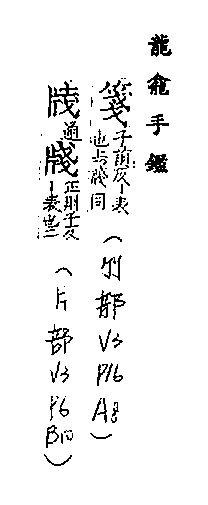 龍龕手鑑
箋子前反ー表也与牋同(竹部V3P16A8)
牋通牋正則千反ー表也二(片部V3P6B10)